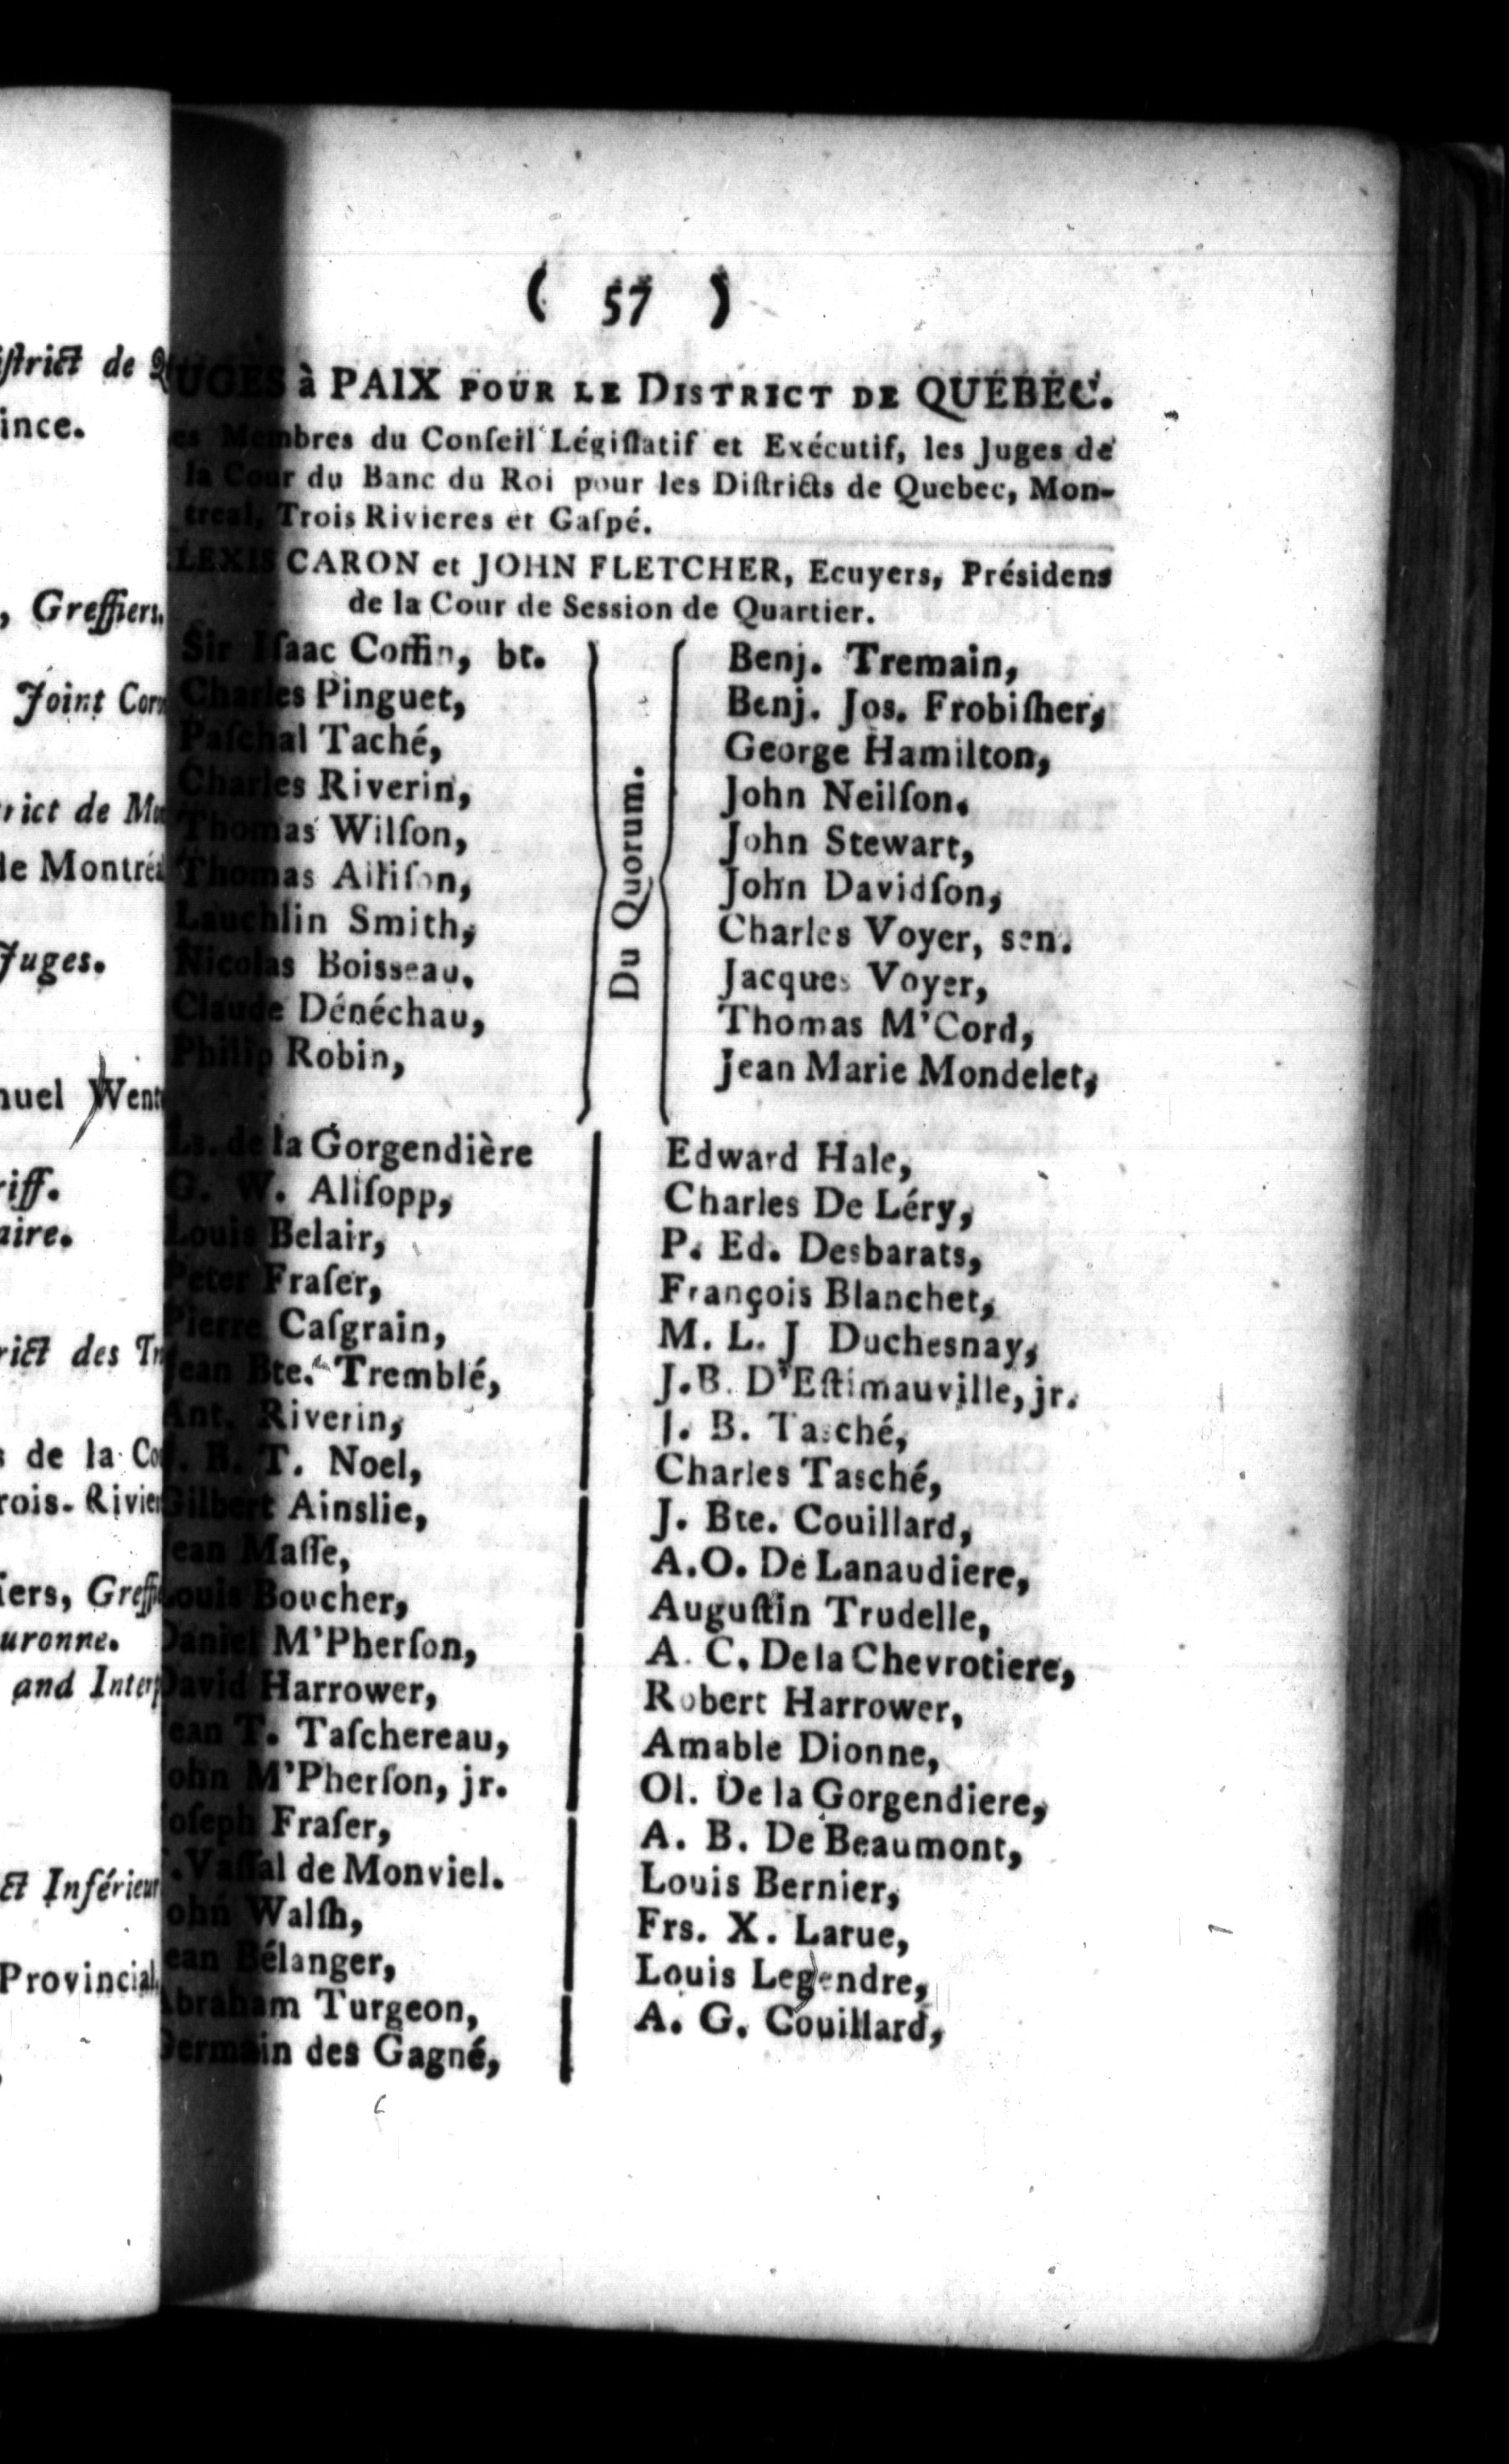 ( 57 )
UGES à PAIX POUR LE DISTRICT DE QUÉBEC.
es Membres du Conſeil Légiſlatif et Exécutif, les Juges de
la Cour du Banc du Roi pour les Diſtricts de Quebec, Mon-
treal, Trois Rivieres et Gaſpé.
LEXIS CARON et JOHN FLETCHER, Ecuyers, Présidens
de la Cour de Session de Quartier.
Sir Iſaac Coffin, bt.
Charles Pinguet,
Paſchal Taché,
Charles Riverin,
Thomas Wilſon,
Thomas Alliſon,
Lauchlin Smith,
Nicolas Boisseau.
Claude Dénéchau,
Philip Robin,
Du Quorum.
Benj. Tremain,
Benj. Jos. Frobiſher,
George Hamilton,
John Neilſon.
John Stewart,
John Davidſon,
Charles Voyer, sen.
Jacques Voyer,
Thomas M'Cord,
Jean Marie Mondelet,
Ls. de la Gorgendière
G. W. Allſopp,
Louis Belair,
Peter Fraſer,
Pierre Caſgrain,
Jean Bte. Tremblé,
Ant. Riverin,
. B. T. Noel,
Gilbert Ainslie,
ean Maſſe,
Louis Boucher,
Daniel M'Pherſon,
David Harrower,
ean T. Taſchereau,
ohn M'Pherſon, jr.
oſeph Fraſer,
. Vaſſal de Monviel.
ohn Walſh,
ean Bélanger,
Abraham Turgeon,
Germain des Gagné,
Edward Hale,
Charles De Léry,
P. Ed. Desbarats,
François Blanchet,
M. L. J Duchesnay,
J.B. D'Eſtimauville, jr.
J. B. Tasché,
Charles Tasché,
J. Bte. Couillard,
A.O. De Lanaudiere,
Auguſtin Trudelle,
A. C. De la Chevrotiere,
Robert Harrower,
Amable Dionne,
Ol. De la Gorgendiere,
A. B. De Beaumont,
Louis Bernier,
Frs. X. Larue,
Louis Legendre,
A. G. Couillard,
iſtrict de Q
ince.
, Greffiers.
Joint Cor
rict de Mo
de Montréa
Juges.
nuel Went
riff.
aire.
rict des Tr
s de la Co
rois-Rivier
iers, Greffi
uronne.
and Interp
ct Inférieur
Provincial.